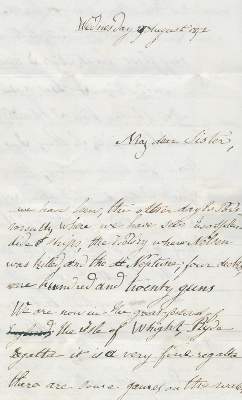 Wednesday August 1872
My dear Sister,
we have been, this other day to Ports
mouth, where we have seen
ships, the Victory where Nelson
was killed and the Neptune, four decks
one hundred and twenty guns
We are now in the
the Isle of Whight Ryde
Regatta it is a very fine regatta
there are some games on the